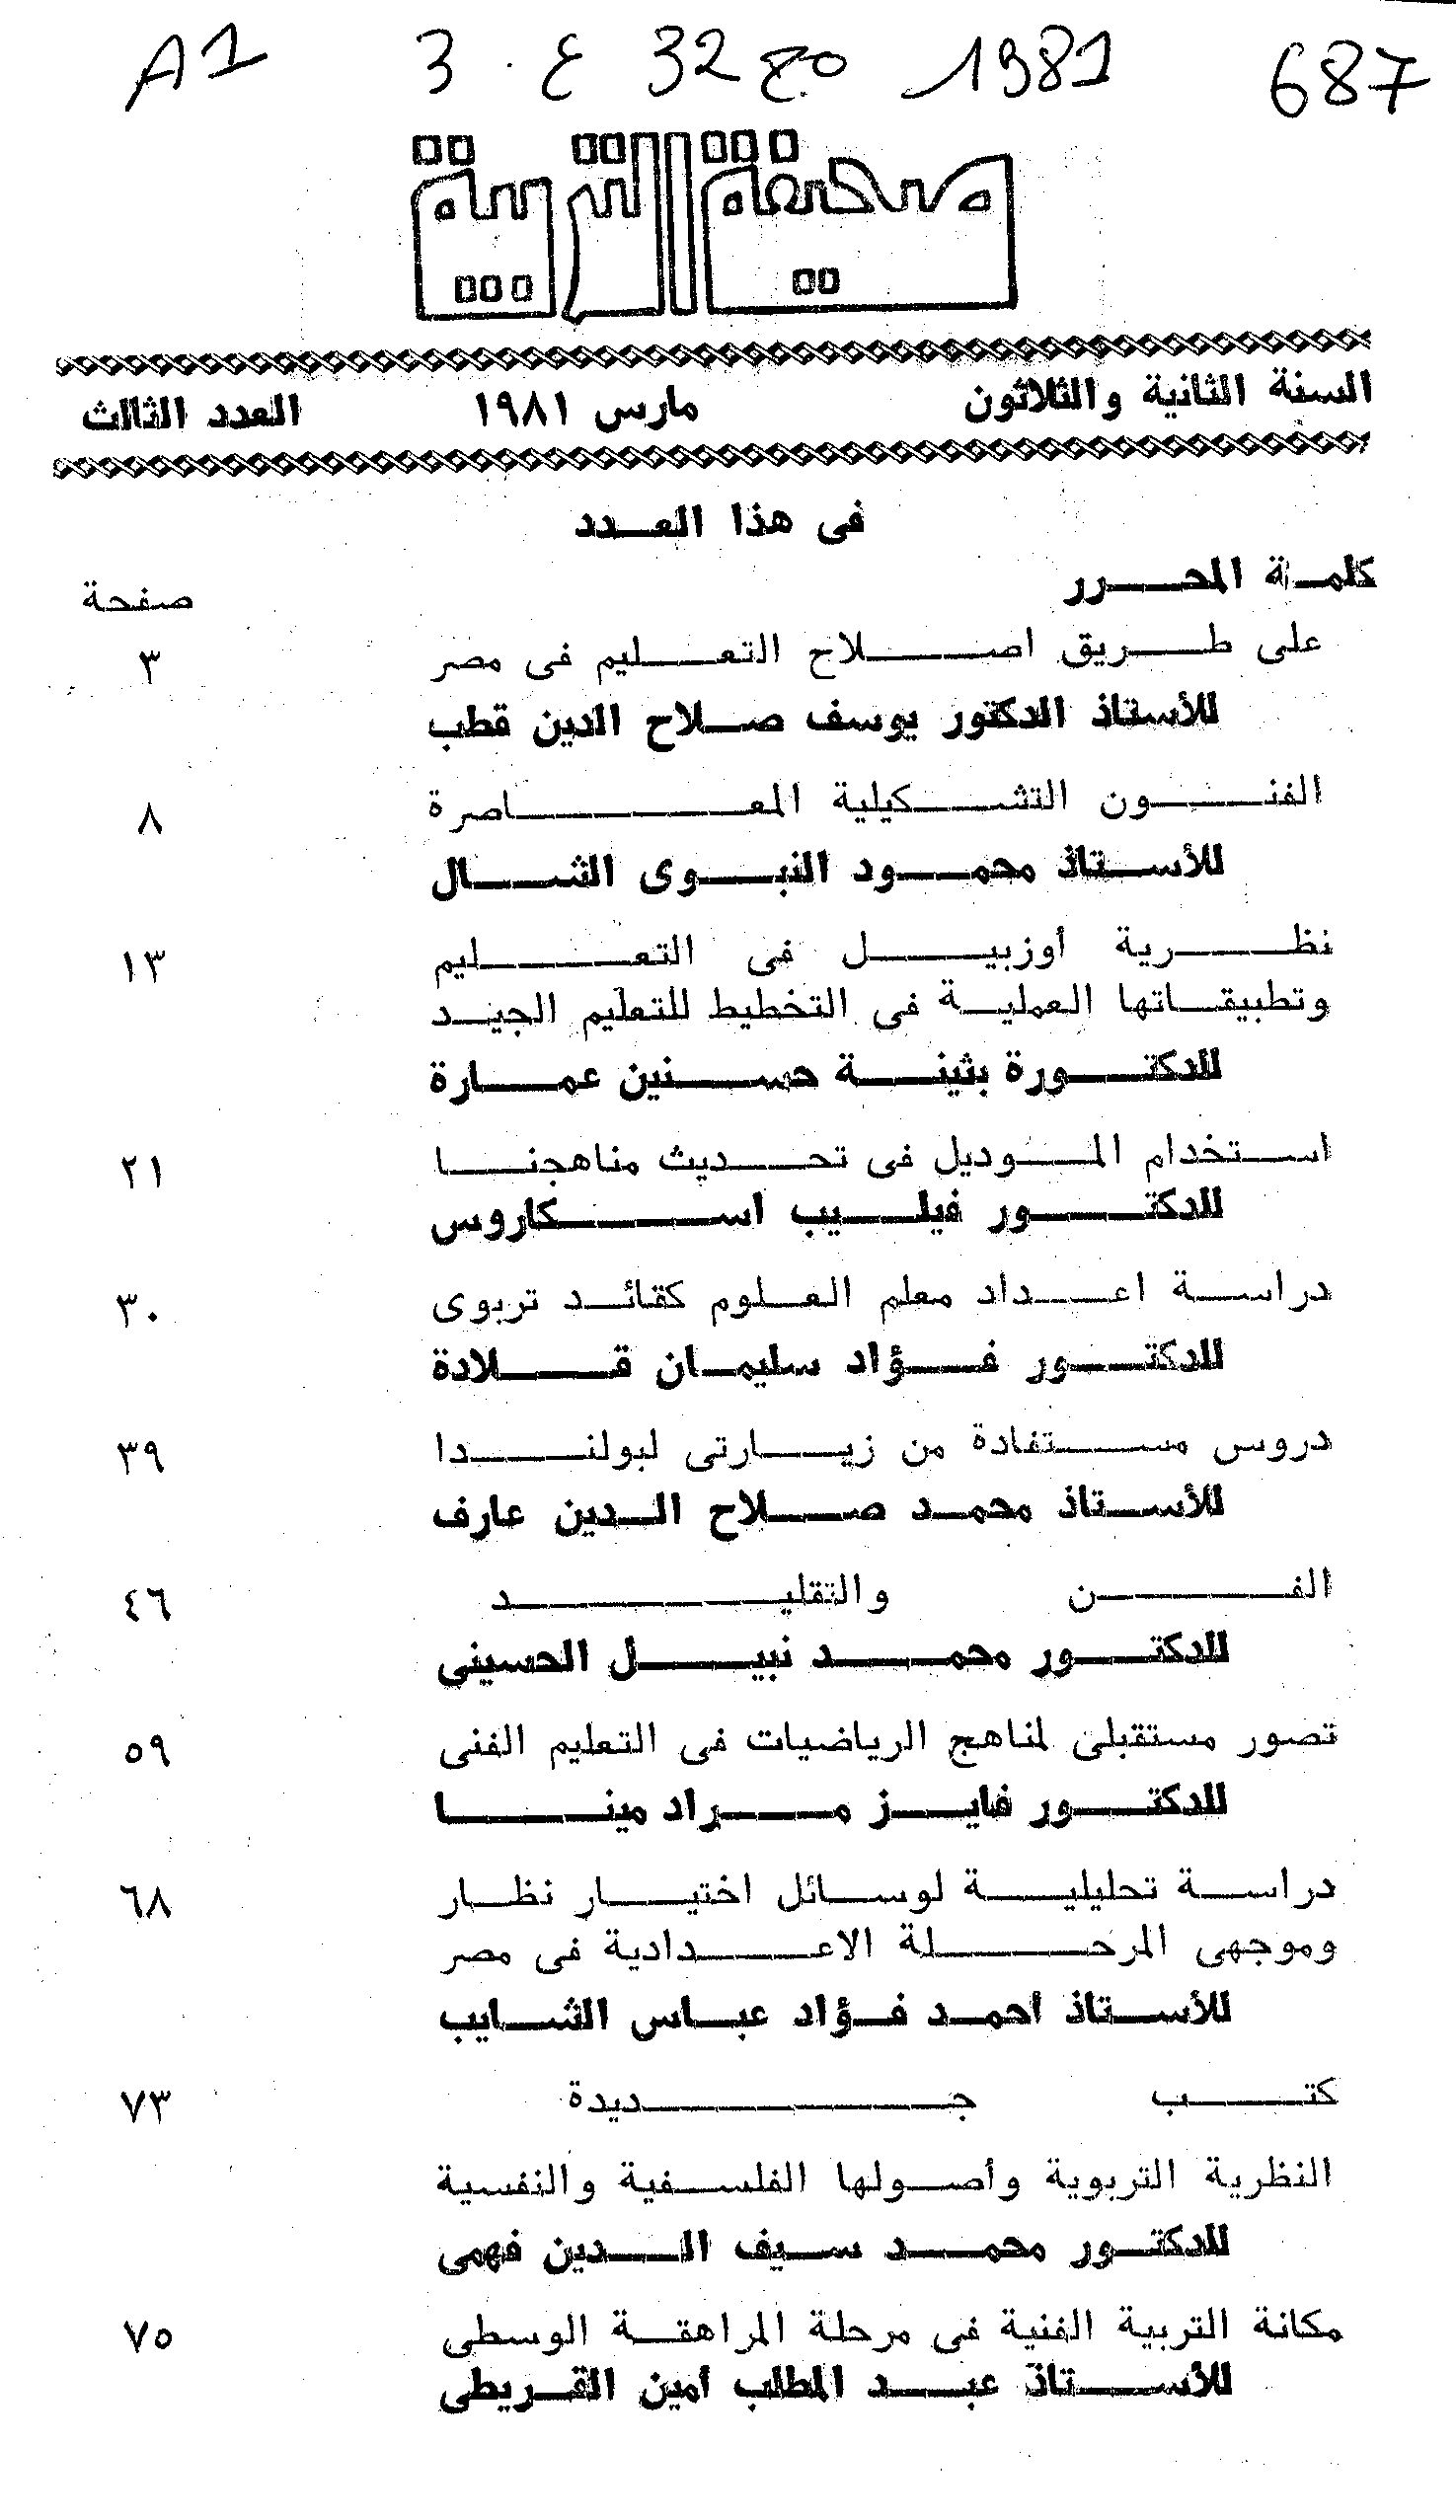 A1 3 ع 32 مج 1981 687
صحيفة التربية
السنة الثانية والثلاثون مارس ١٩٨١ العدد الثالث
فى هذا العدد
كلمة المحرر
صفحة
على طريق اصلاح التعليم فى مصر ٣
للأستاذ الدكتور يوسف صلاح الدين قطب
الفنون التشكيلية المعاصرة ٨
للأستاذ محمود النبوى الشال
نظرية أوزبيل فى التعليم ١٣
وتطبيقاتها العملية فى التخطيط للتعليم الجيد
للدكتورة بثينة حسنين عمارة
استخدام الموديل فى تحديث مناهجنا ٢١
للدكتور فيليب اسكاروس
دراسة اعداد معلم العلوم كقائد تربوى ٣٠
للدكتور فؤاد سليمان قلادة
دروس مستفادة من زيارتى لبولندا ٣٩
للأستاذ محمد صلاح الدين عارف
الفن والتقليد ٤٦
للدكتور محمد نبيل الحسينى
تصور مستقبلى لمناهج الرياضيات فى التعليم الفنى ٥٩
للدكتور فايز مراد مينا
دراسة تحليلية لوسائل اختيار نظار ٦٨
وموجهى المرحلة الاعدادية فى مصر
للأستاذ احمد فؤاد عباس الشايب
كتب جديدة ٧٣
النظرية التربوية وأصولها الفلسفية والنفسية
للدكتور محمد سيف الدين فهمى
مكانة التربية الفنية فى مرحلة المراهقة الوسطى ٧٥
للأستاذ عبد المطلب أمين القريطى